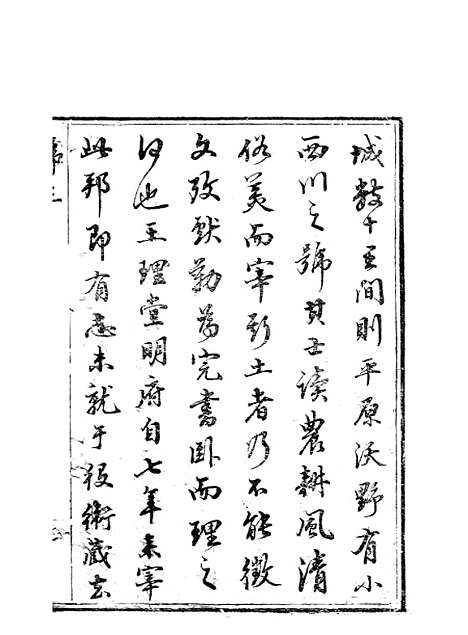 城數十里間則平原沃野有小
西川之號其士讀農耕風清
俗美而宰斯土者乃不能徵
文攷獻勒為完書臥而理之
何也王理堂明府自七年來宰
此邦即有志未就于役衛藏去